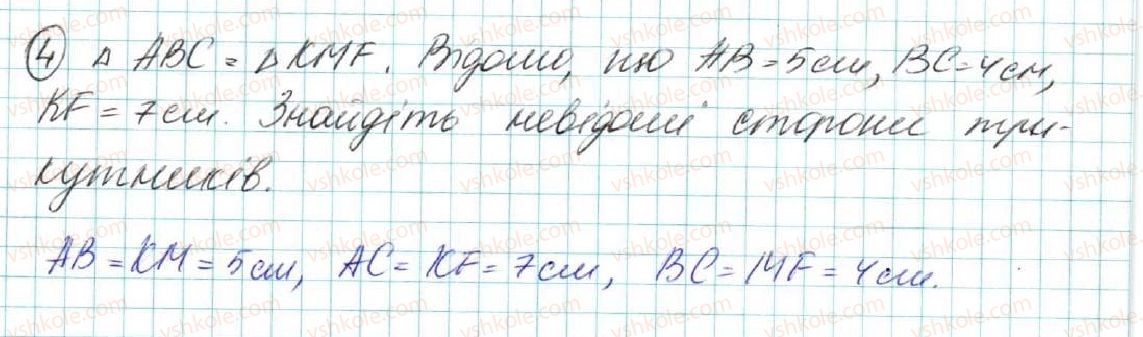 ④ Δ ABC = Δ KMF. Відомо, що AB = 5 см, BC = 4 см,
KF = 7 см. Знайдіть невідомі сторони три-
кутників.
AB = KM = 5 см, AC = KF = 7 см, BC = MF = 4 см.